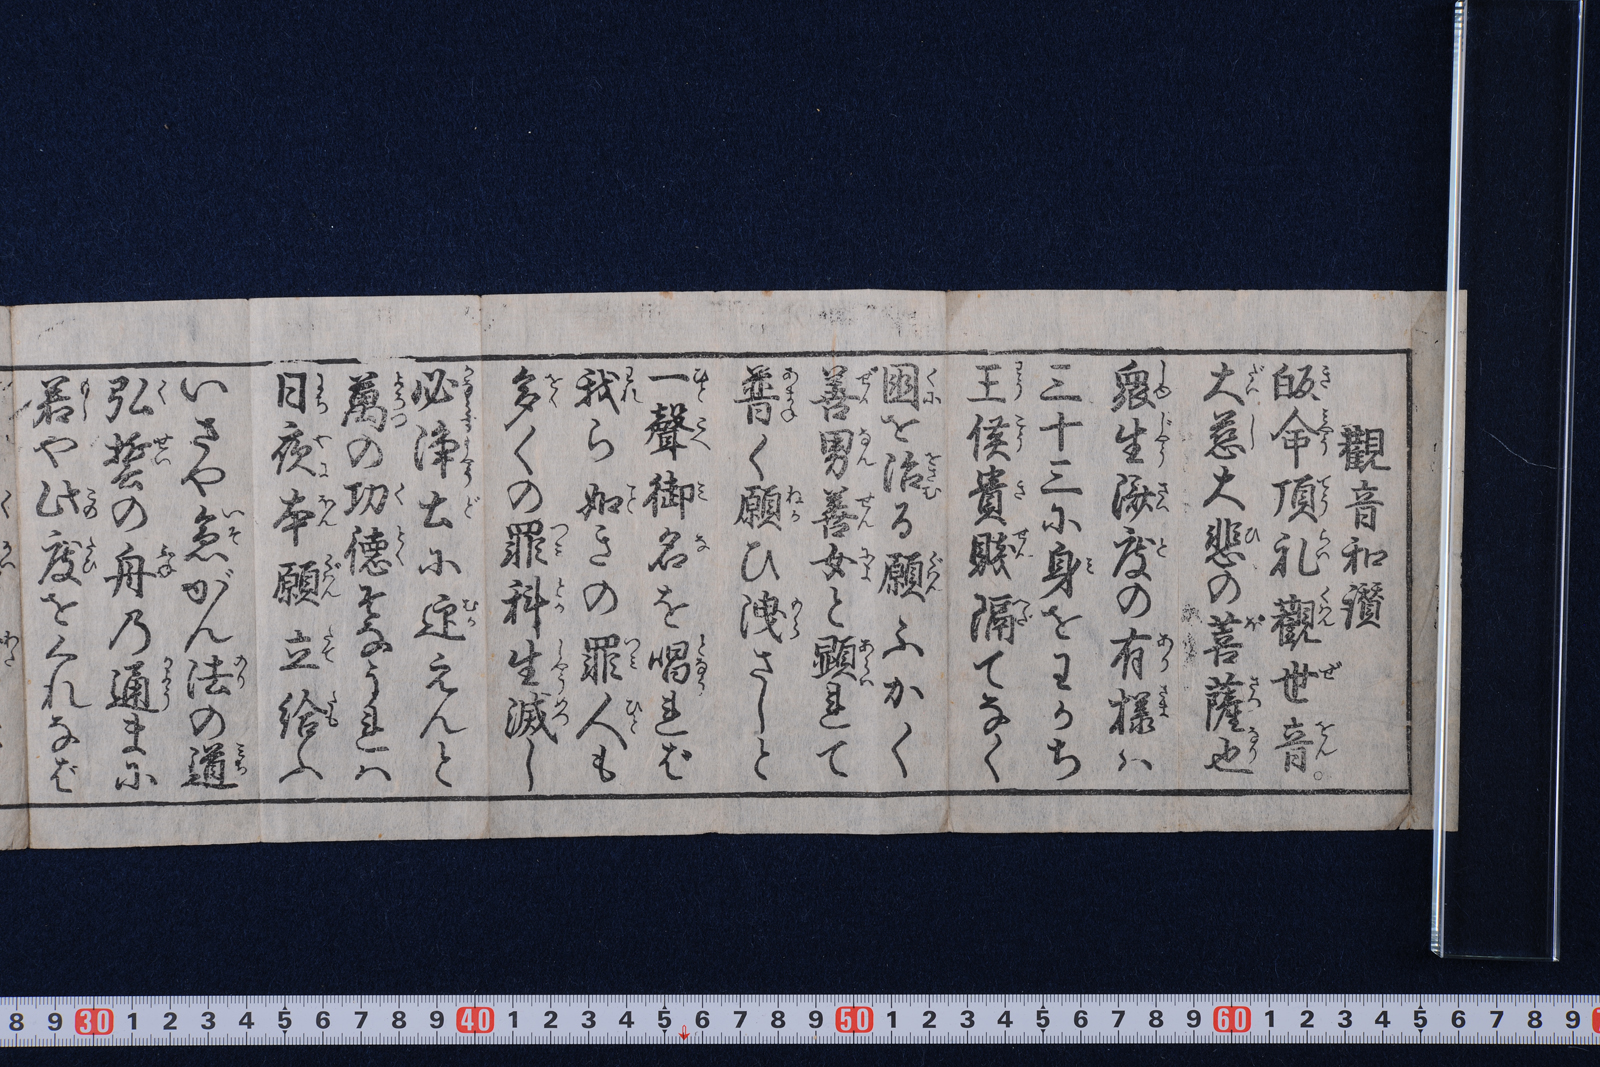 觀音和讃
皈命頂礼觀世音。
大慈大悲の菩薩也
衆生済度の有様ハ
三十三に身をわかち
王侯貴賤隔てなく
国を治る願ふかく
善男善女と顕れて
普く願ひ洩さじと
一聲御名を唱れば
我ら如きの罪人も
多くの罪科生滅し
必浄土に迎えんと
萬の功徳そなうれハ
日夜本願立給ふ
いさや急がん法の道
弘誓の舟乃通まに
若や此度をくれなば
8 9 30 1 2 3 4 5 6 7 8 9 40 1 2 3 4 5 6 7 8 9 50 1 2 3 4 5 6 7 8 9 60 1 2 3 4 5 6 7 8 9